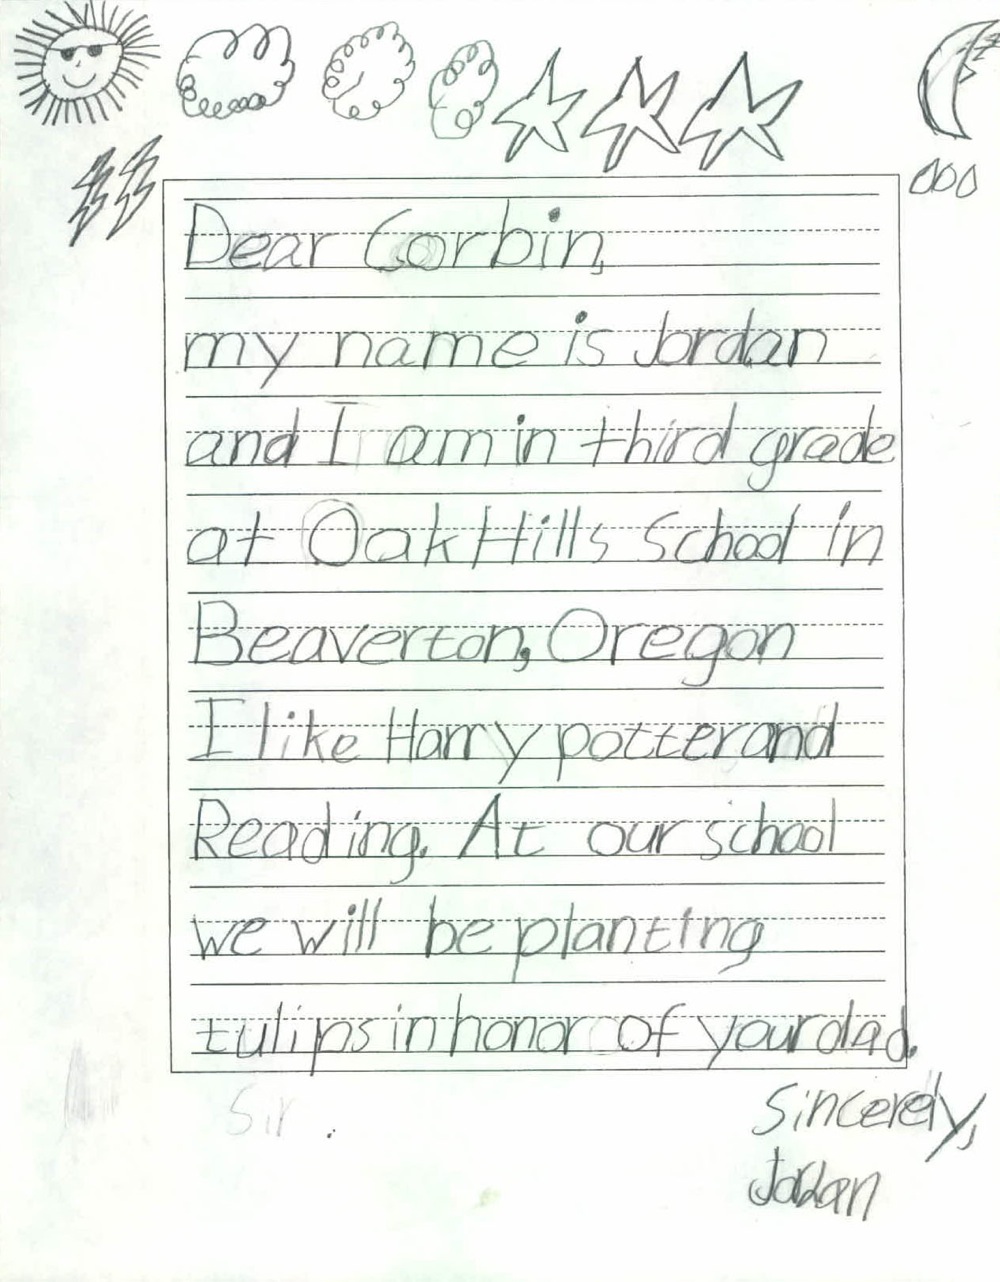 Dear Corbin,
my name is Jordan
and I am in third grade
at Oak Hills School in
Beaverton, Oregon
I like Harry potter and
Reading. At our school
we will be planting
tulips in honor of your dad.
Sir
Sincerely,
Jordan